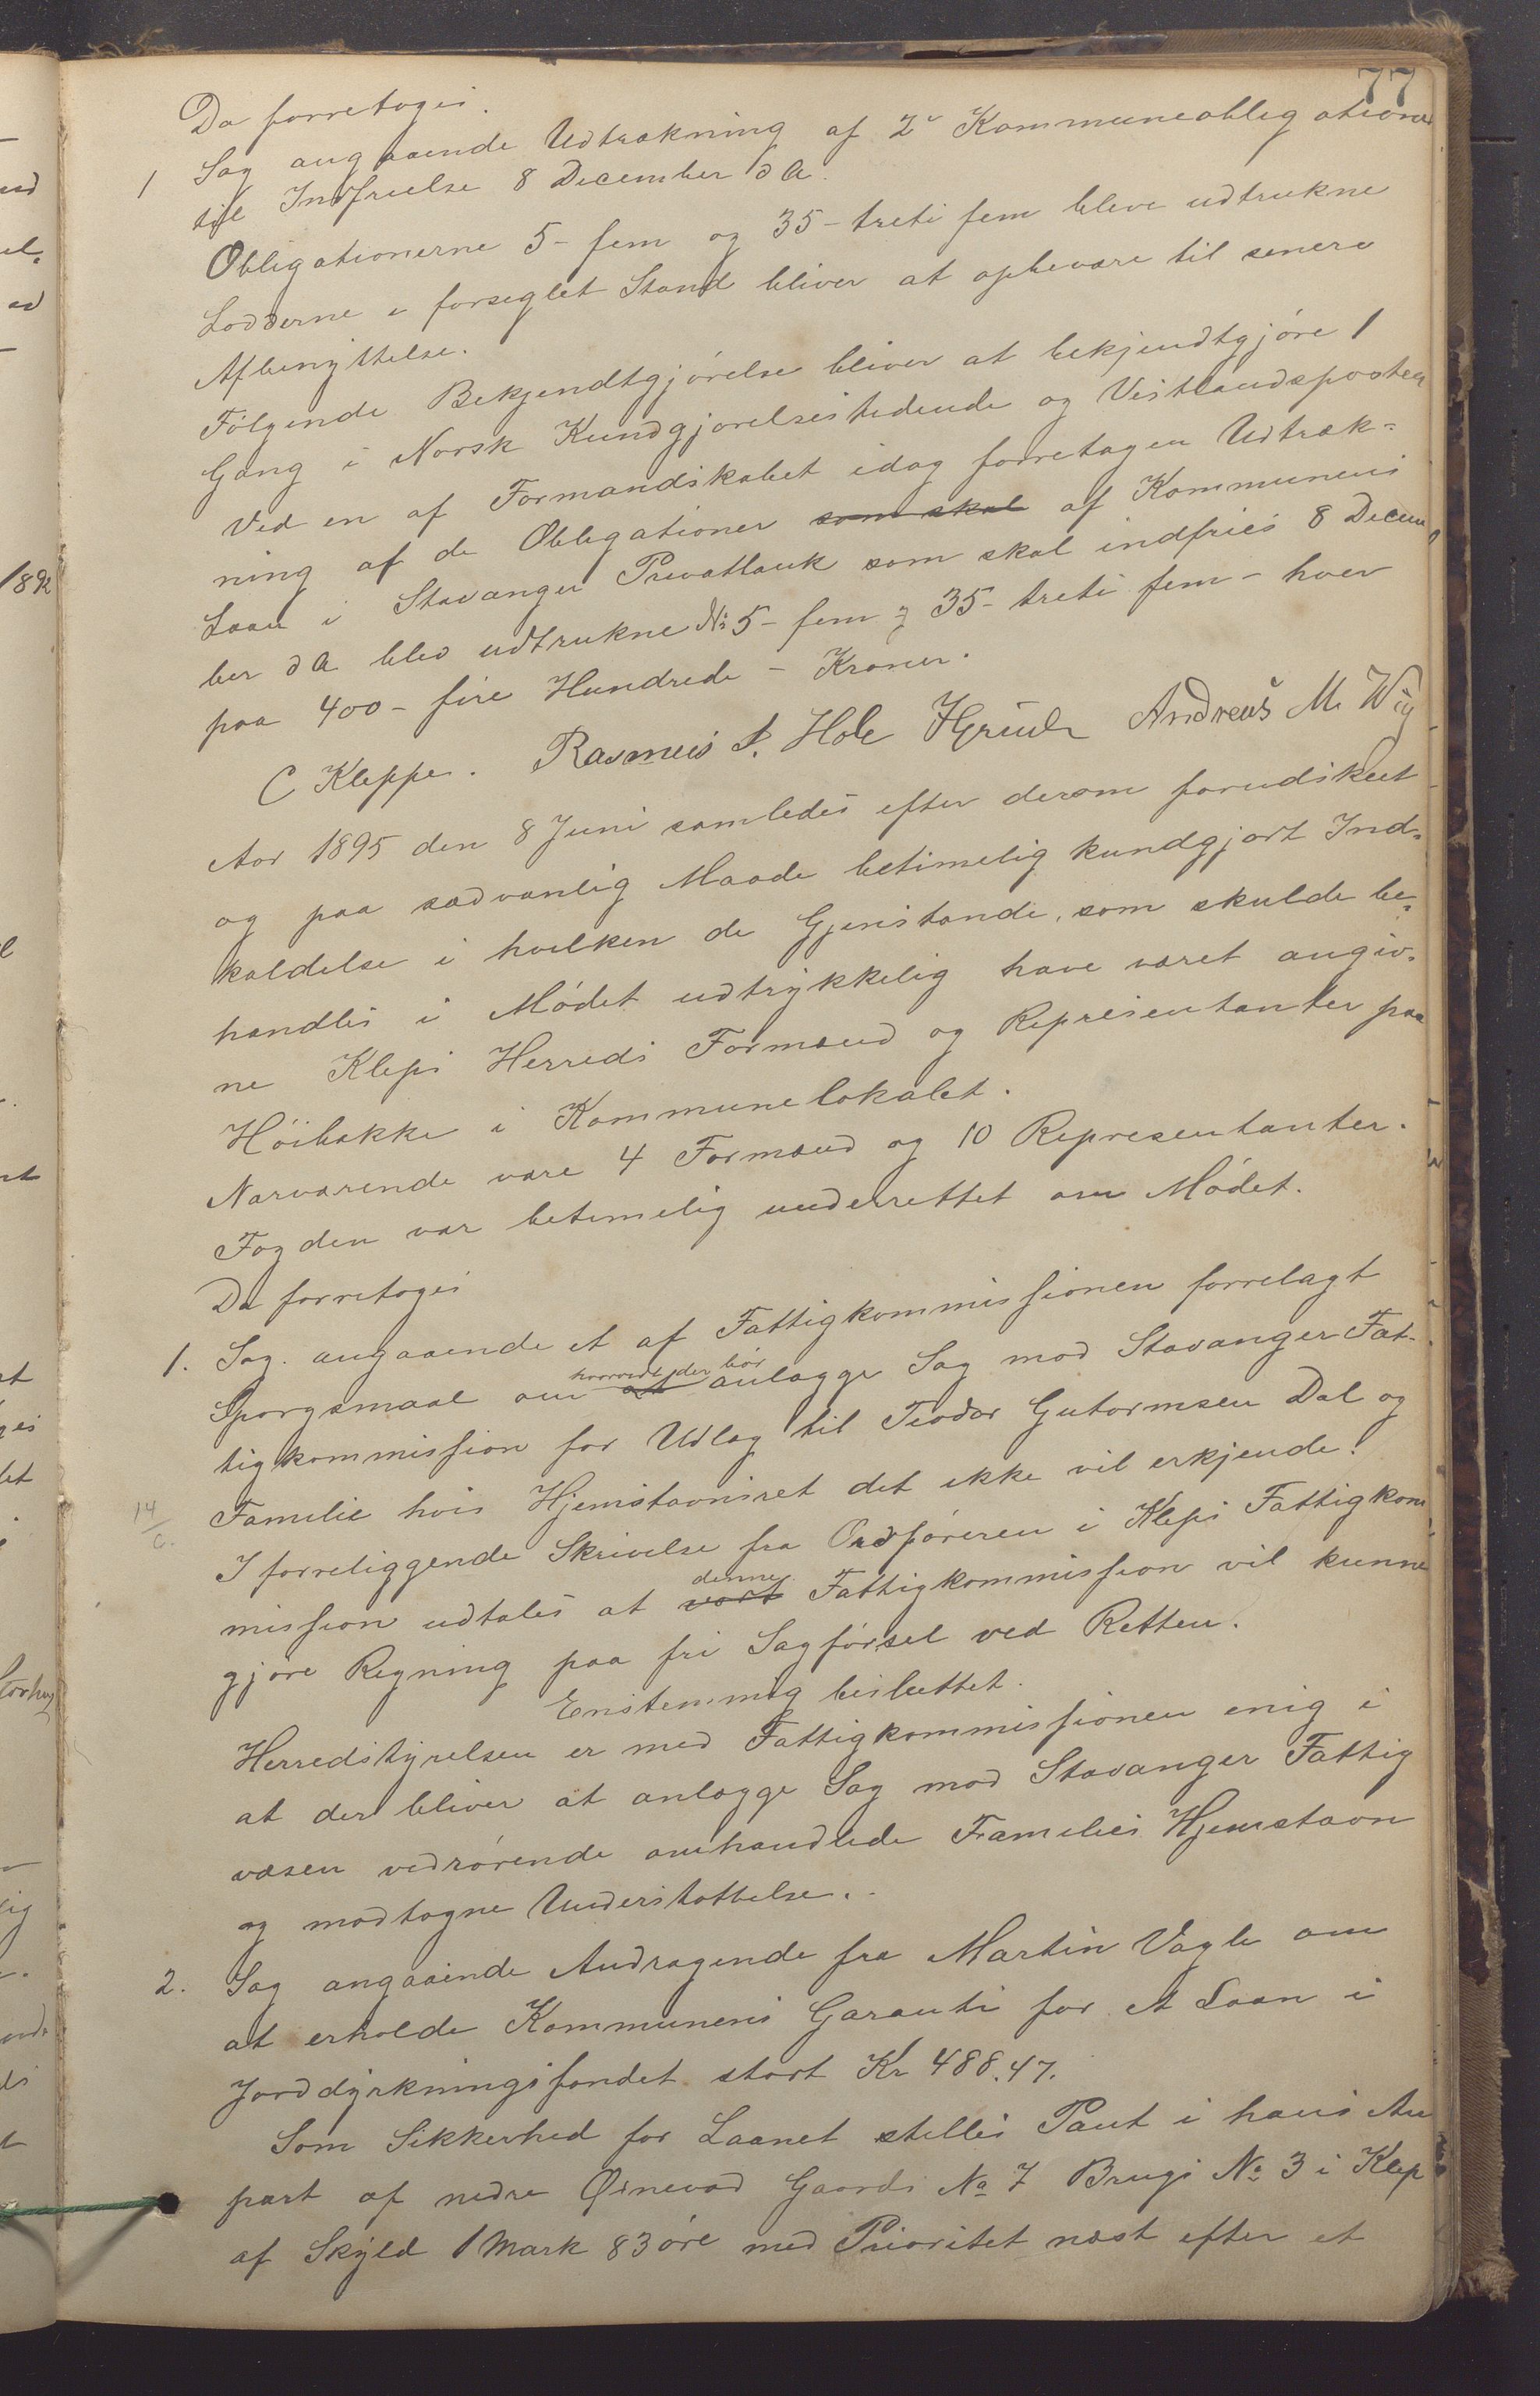 77
Da forretoges.
1 Sag angaaende Udtrækning af 2 Kommuneobligationer
til Indfrielse 8 December d A.
Obligationerne 5 - fem og 35 - treti fem bleve udtrukne
Lodderne i forseglet Stand bliver at opbevare til senere
Afbenyttelse.
Følgende Bekjendtgjörelse bliver at bekjendtgjöre 1
Gang i Norsk Kundgjørelsestidende og Vestlandsposten
Ved en af Formandskabet idag foretagen Udtræk-
ning af de Obligationer som skal af Kommunens
Laan i Stavanger Privatbank som skal indfries 8 Decem
ber d A blev udtrukne No 5 - fem og 35 - treti fem - hver
paa 400 - fire Hundrede - Kroner.
C Kleppe. Rasmus S. Hole Andreas M. Wiig
Aar 1895 den 8 Juni samledes efter derom forudskeet
og paa sædvanlig Maade betimelig kundgjort Ind-
kaldelse i hvilken de Gjenstande, som skulde be-
handles i Mödet udtrykkelig have været angiv-
ne Kleps Herreds Formænd og Repræsentanter paa
Höibakke i Kommunelokalet.
Nærværende vare 4 Formænd og 10 Repræsentanter.
Fogden var betimelig underrettet om Mödet.
Da forretoges
1. Sag angaaende et af Fattigkommissionen forrelagt
Spørgsmaal om at hvorvidt der bör anlægge Sag mod Stavanger Fat-
tigkommission for Udlæg til Teodor Gutormsen Dal og
Familie hvis Hjemstavnsret det ikke vil erkjende.
14/6.
I forreliggende Skrivelse fra Ordföreren i Kleps Fattigkom
mission udtales at vort denne Fattigkommission vil kunne
gjøre Regning paa fri Sagförsel ved Retten.
Enstemmig besluttet.
Herredstyrelsen er med Fattigkommissionen enig i
at der bliver at anlægge Sag mod Stavanger Fattig
væsen vedrörende omhandlede Families Hjemstavn
og modtagne Understøttelse.
2. Sag angaaende Andragende fra Martin Vagle om
at erholde Kommunens Garanti for et Laan i
Jorddyrkningsfondet stort Kr 488.47.
Som Sikkerhed for Laanet stilles Pant i hans An
part af nedre Øxnevad Gaards No 7 Brugs No 3 i Klep
af Skyld 1 Mark 83 öre med Prioritet næst efter et